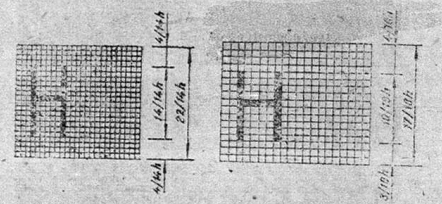 4/14h
14/14h
22/14h
4/14h
10/10h
17/10h
3/10h
H
H